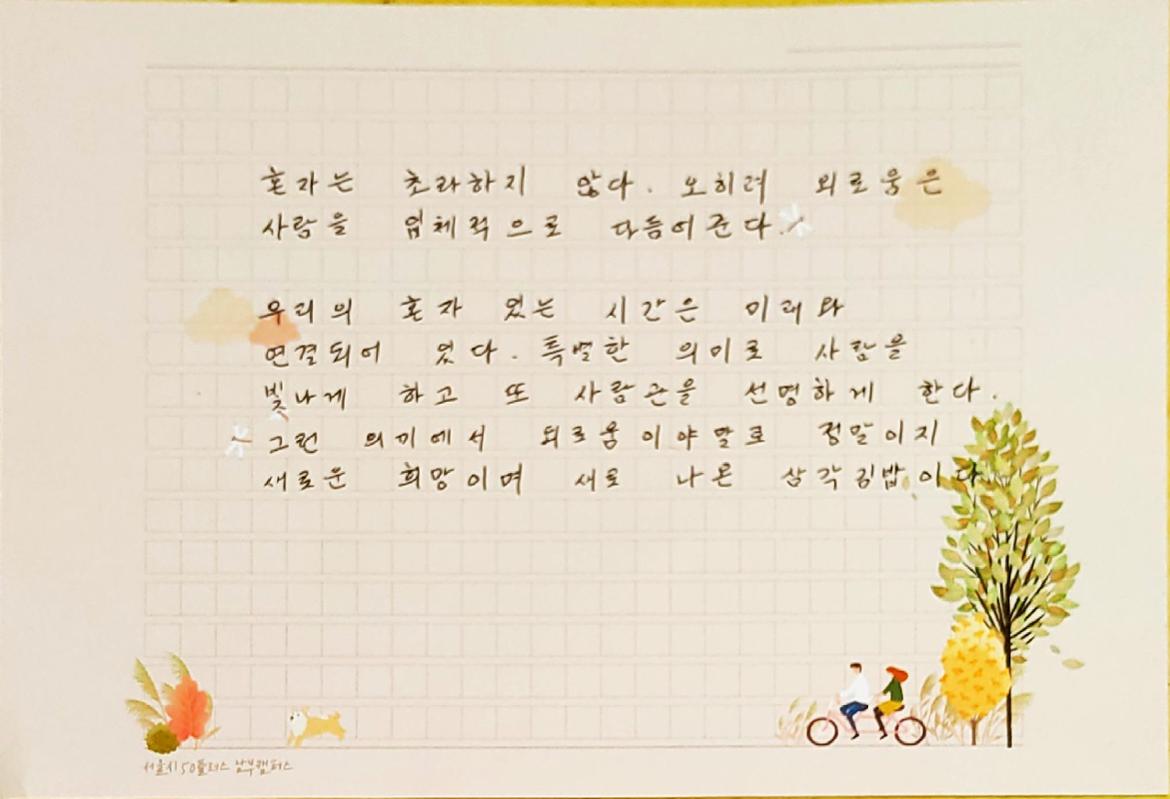 혼자는 초라하지 않다. 오히려 외로움은
사람을 입체적으로 다듬어준다.
우리의 혼자 있는 시간은 미래와
연결되어 있다. 특별한 의미로 사람을
빛나게 하고 또 사람관을 선명하게 한다.
그런 의미에서 외로움이야말로 정말이지
새로운 희망이며 새로 나온 삼각김밥이다
서울시50플러스 남부캠퍼스